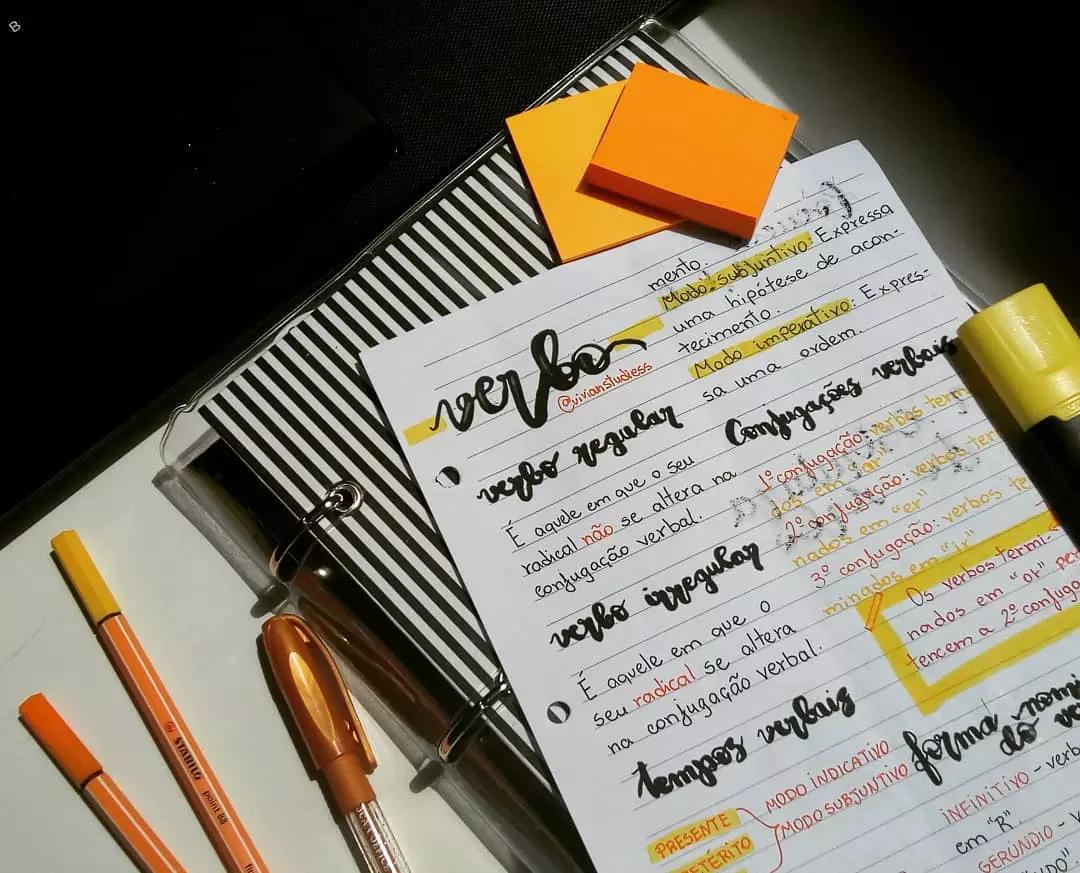 verbo
@vivianstudiess
verbo regular
É aquele em que o seu
radical não se altera na
conjugação verbal.
verbo irregular
É aquele em que o
seu radical se altera
na conjugação verbal.
tempos verbais
PRESENTE
MODO INDICATIVO
MODO SUBJUNTIVO
mento.
Modo subjuntivo: Expressa
uma hipótese de acon-
tecimento.
Modo imperativo: Expres-
sa uma ordem.
Conjugações verbais
1º conjugação: verbos term
nados em "ar"
2º conjugação: verbos ter
nados em "er"
3º conjugação: verbos te
minados em "ir"
Os verbos termi-
nados em "or" per
tencem a 2º conjuga
forma nomi
do ve
INFINITIVO - verb
em "R".
GERÚNDIO - V
by STABILO
point 88
B